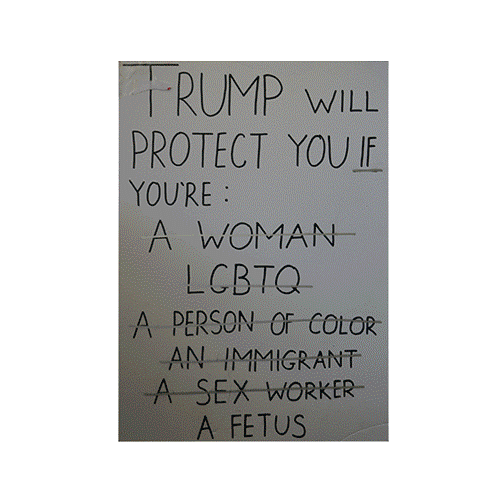 TRUMP WILL
PROTECT YOU IF
YOU'RE :
A WOMAN
LGBTQ
A PERSON OF COLOR
AN IMMIGRANT
A SEX WORKER
A FETUS